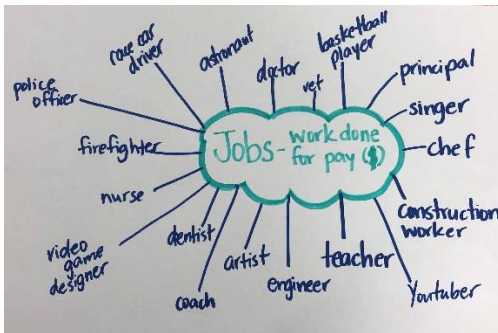 Jobs - work done
for pay ($)
police
officer
race car
driver
astronaut
doctor
vet
basketball
player
principal
singer
chef
construction
worker
Youtuber
teacher
engineer
artist
coach
dentist
video
game
designer
nurse
firefighter